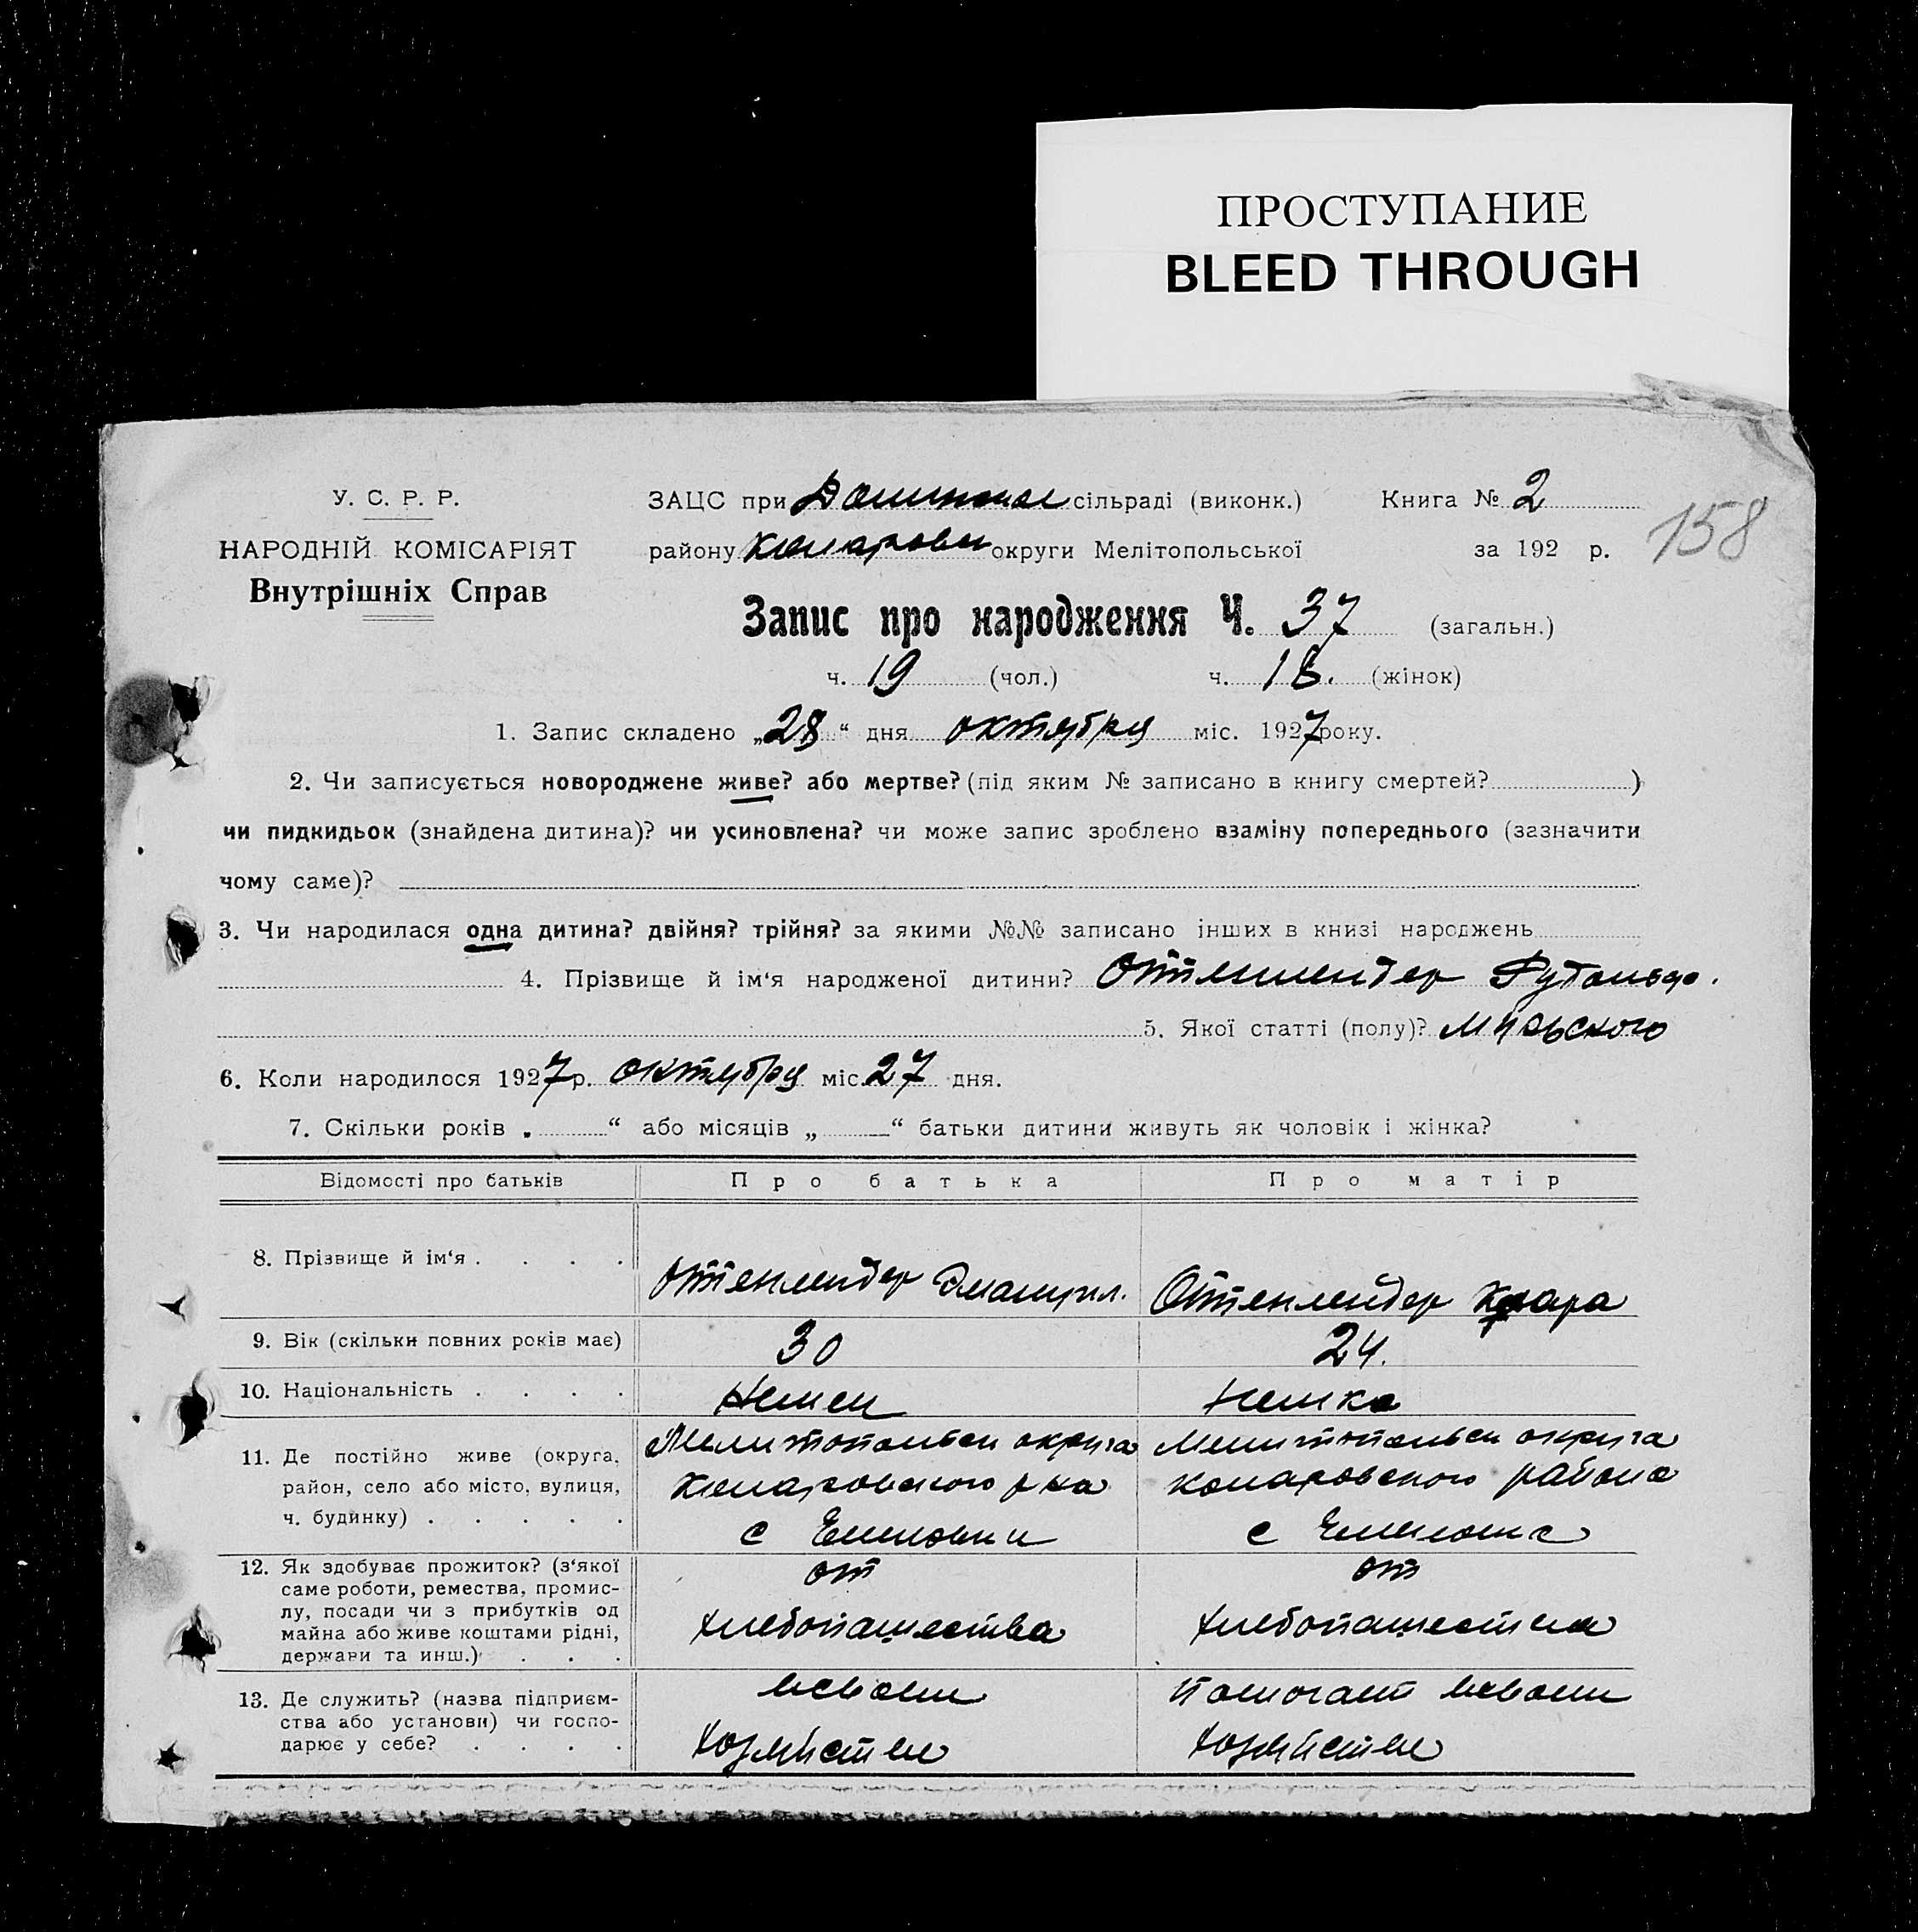 ПРОСТУПАНИЕ
BLEED THROUGH
У. С. Р. Р.
НАРОДНІЙ КОМІСАРІЯТ
Внутрішніх Справ
ЗАЦС при сільраді (виконк.) Книга № 2
району округи Мелітопольської за 192 р. 158
Запис про народження Ч. 37 (загальн.)
ч. 19 (чол.) ч. 18. (жінок)
1. Запис складено „28“ дня октября міс. 1927 року.
2. Чи записується новороджене живе? або мертве? (під яким № записано в книгу смертей? )
чи пидкидьок (знайдена дитина)? чи усиновлена? чи може запис зроблено взаміну попереднього (зазначити
чому саме)?
3. Чи народилася одна дитина? двійня? трійня? за якими №№ записано інших в книзі народжень
4. Прізвище й ім‘я народженої дитини?
5. Якої статті (полу)? Мужского
6. Коли народилося 1927 р. октября міс. 27 дня.
7. Скільки років „ “ або місяців „ “ батьки дитини живуть як чоловік і жінка?
Відомості про батьків Про батька Про матір
8. Прізвище й ім‘я . . . . Оттенлендер Эмануил. Оттенлендер Клара
9. Вік (скільки повних років має) 30 24.
10. Національність . . . . Немец Немка
11. Де постійно живе (округа, район, село або місто, вулиця, ч. будинку) . . . . .
Мелитопольск округа
р на
с
Мелитопольск округа
района
с
12. Як здобуває прожиток? (з‘якої саме роботи, ремества, промис-
лу, посади чи з прибутків од
майна або живе коштами рідні,
держави та инш.) . . .
от
хлебопашества
от
хлебопашества
13. Де служить? (назва підприєм-
ства або установи) чи госпо-
дарює у себе? . . . .
в своем
хозяйстве
помогает в своем
хозяйстве